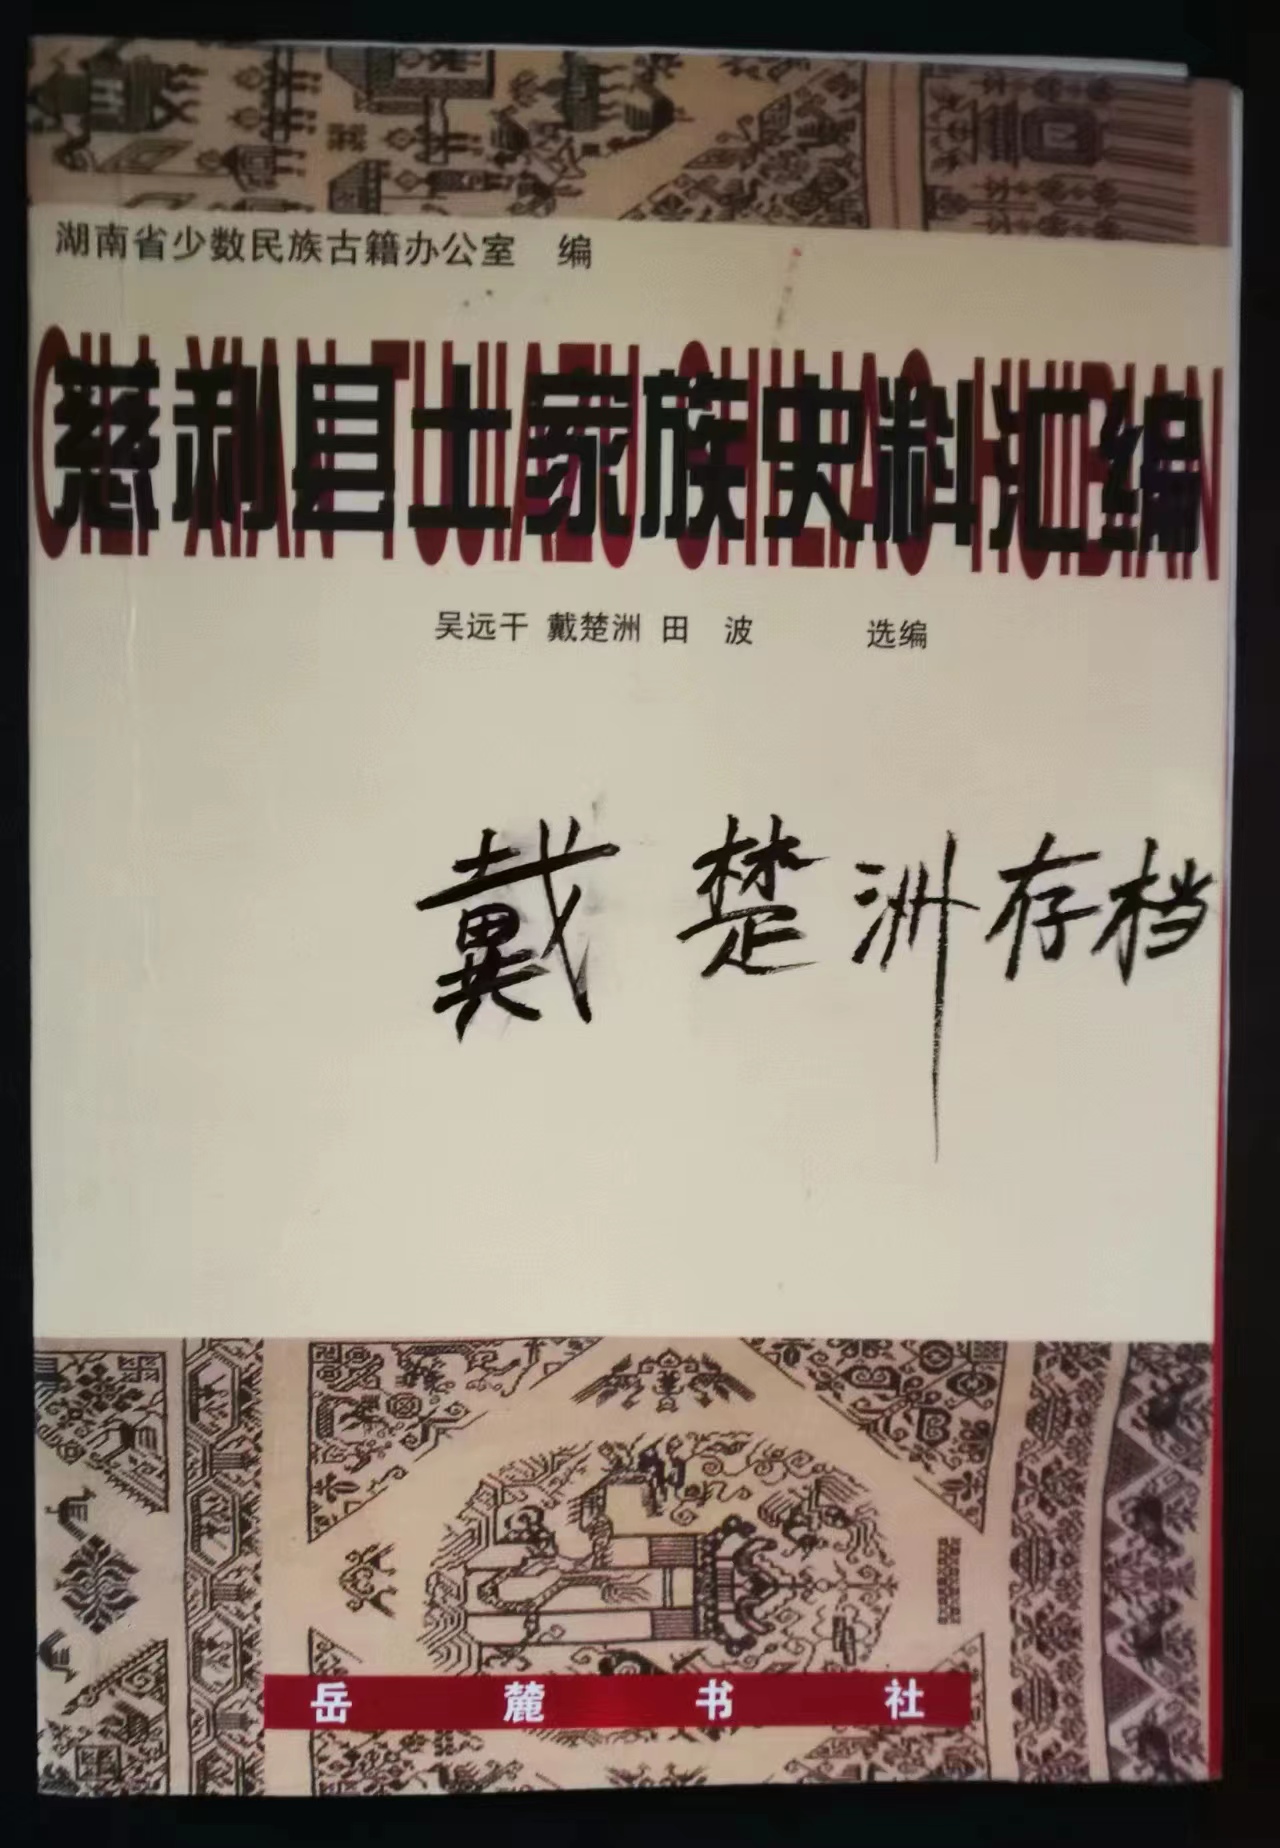 湖南省少数民族古籍办公室 编
CILI XIAN TUJIAZU SHILIAO HUIBIAN
慈利县土家族史料汇编
吴远干 戴楚洲 田 波 选编
戴楚洲存档
岳麓书社